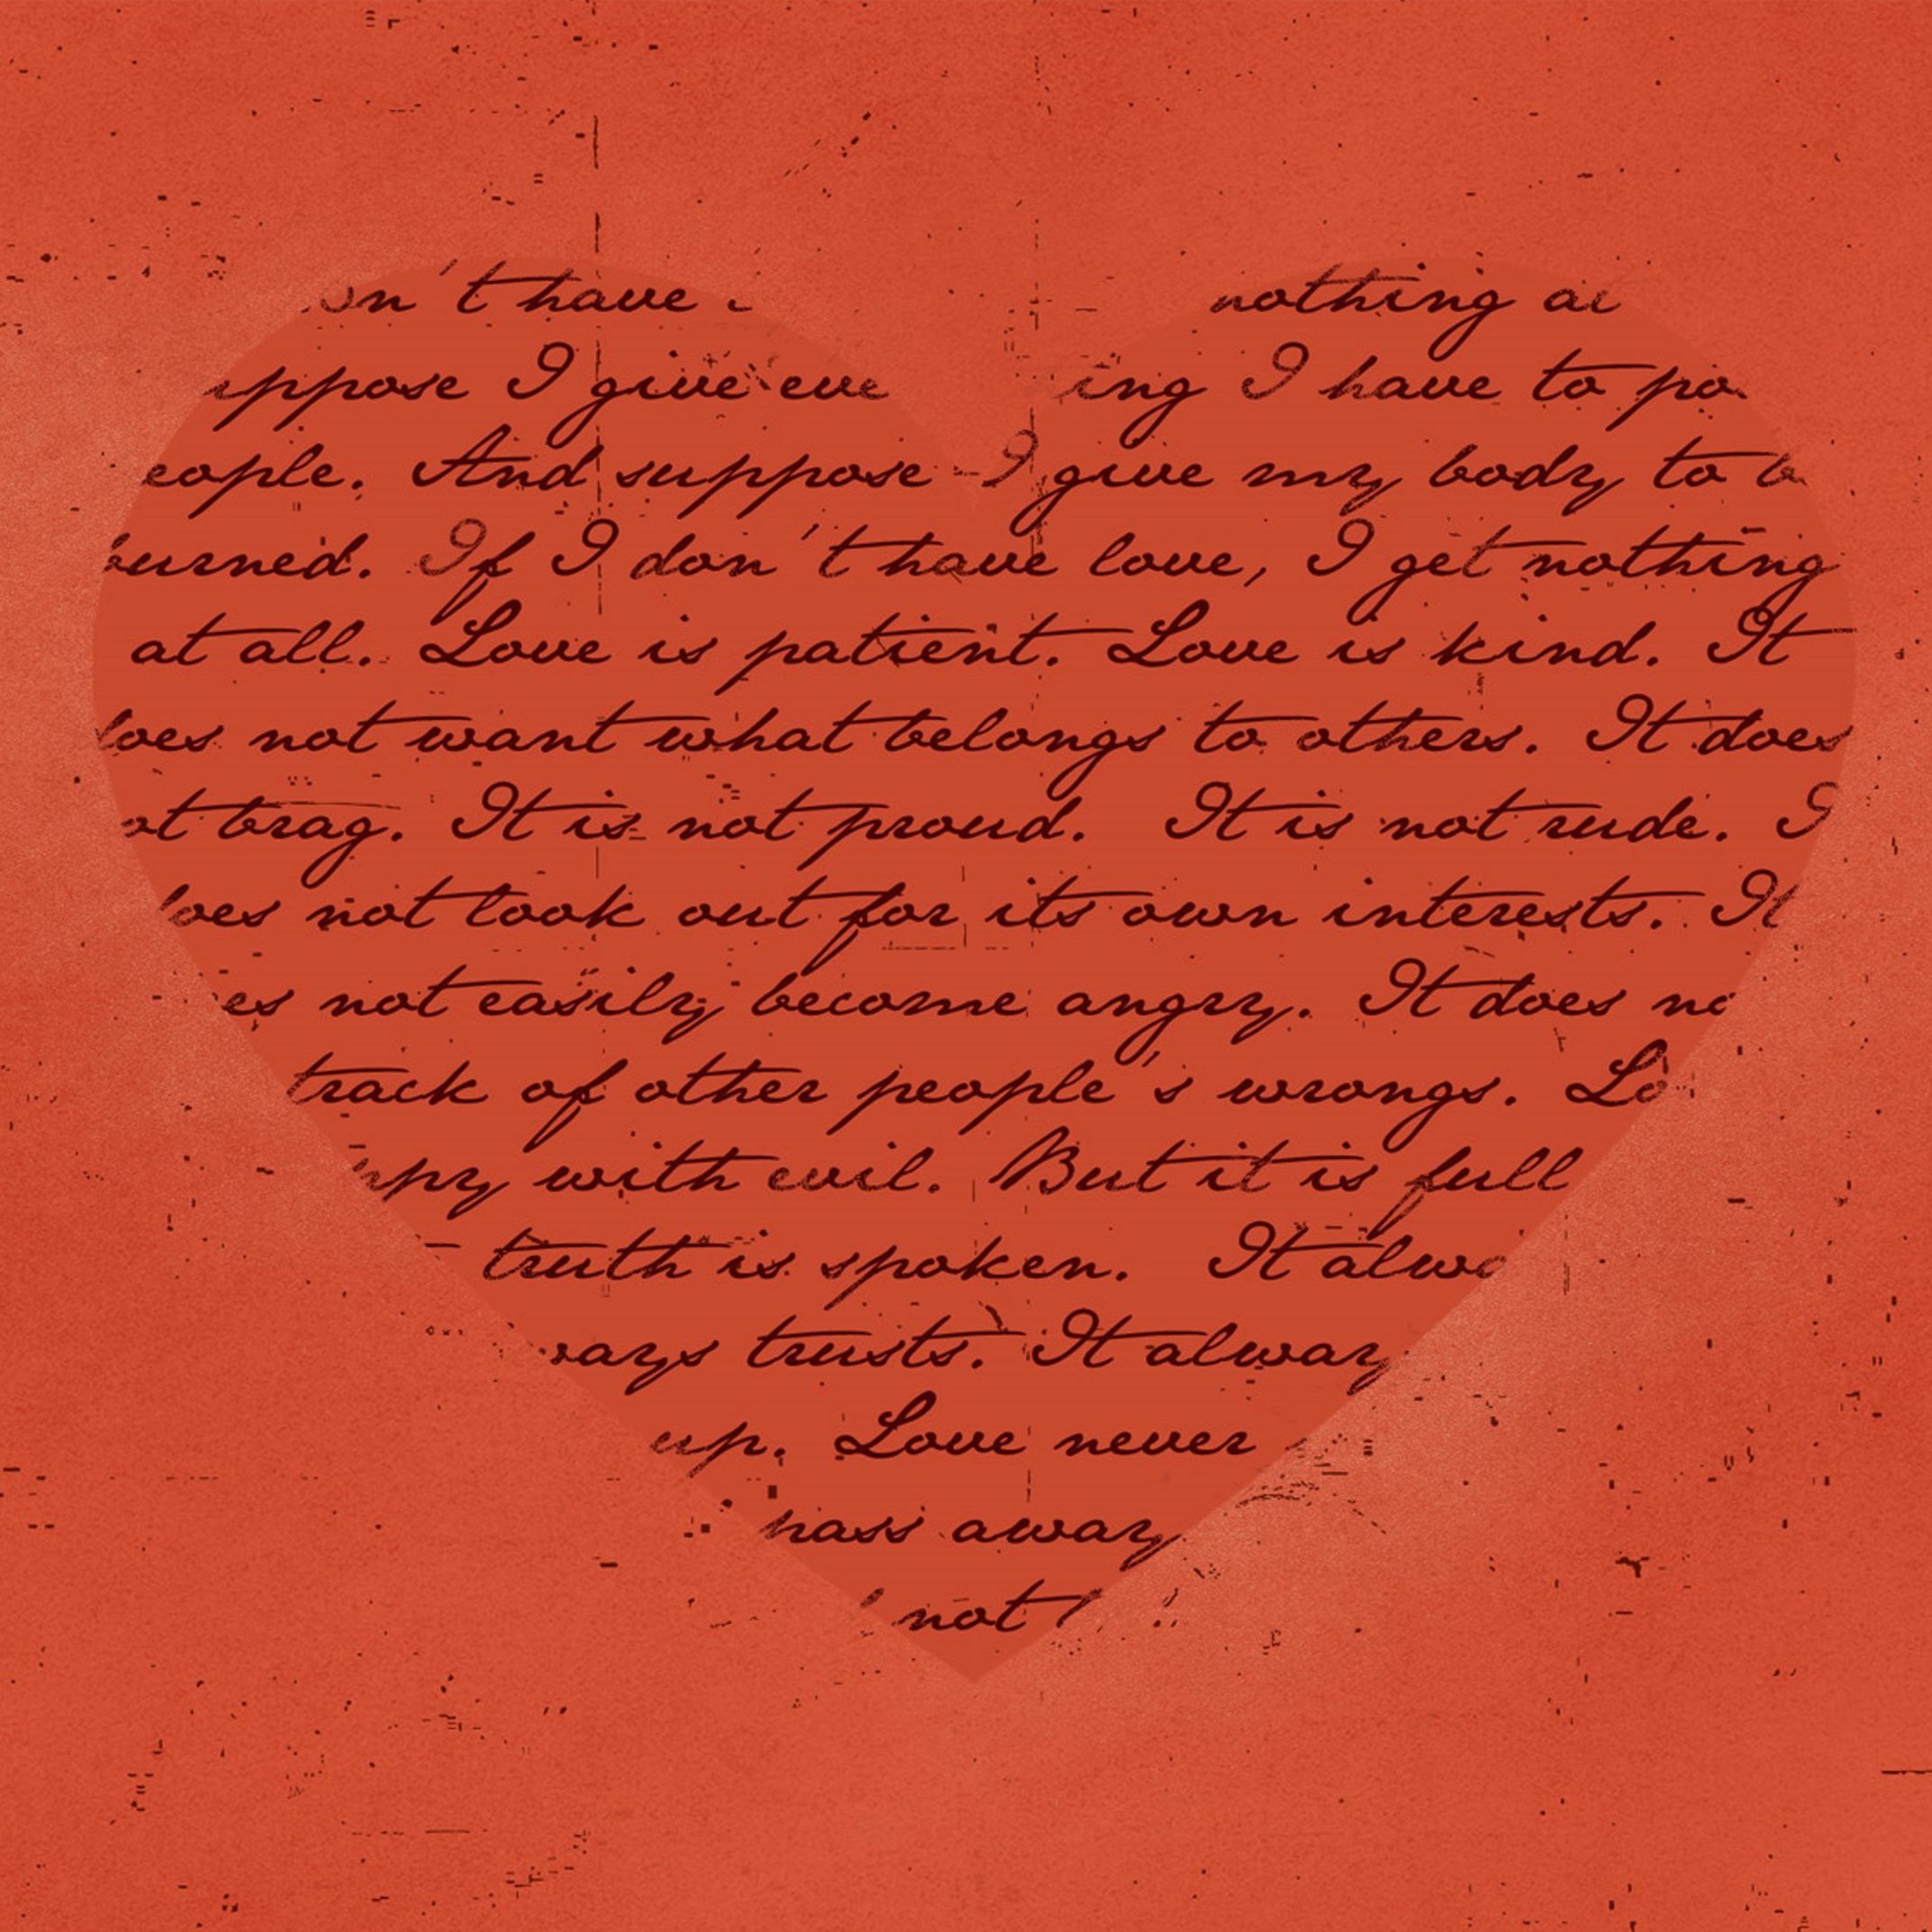 on't have nothing
ppose I give eve ing I have to po
eople. And suppose I give my body to b
burned. If I don't have love, I get nothing
at all. Love is patient. Love is kind. It
does not want what belongs to others. It does
ot brag. It is not proud. It is not rude. I
does not look out for its own interests. It
es not easily become angry. It does no
track of other people's wrongs. Lo
ppy with evil. But it is full
truth is spoken. It alwa
ways trusts. It alway
up. Love never
pass away
not